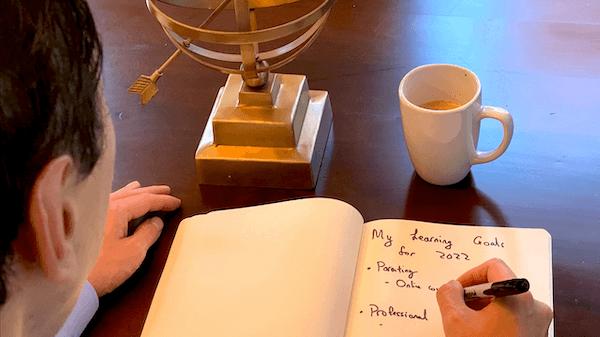 My Learning Goals
for 2022
• Parenting
- Online
• Professional
-